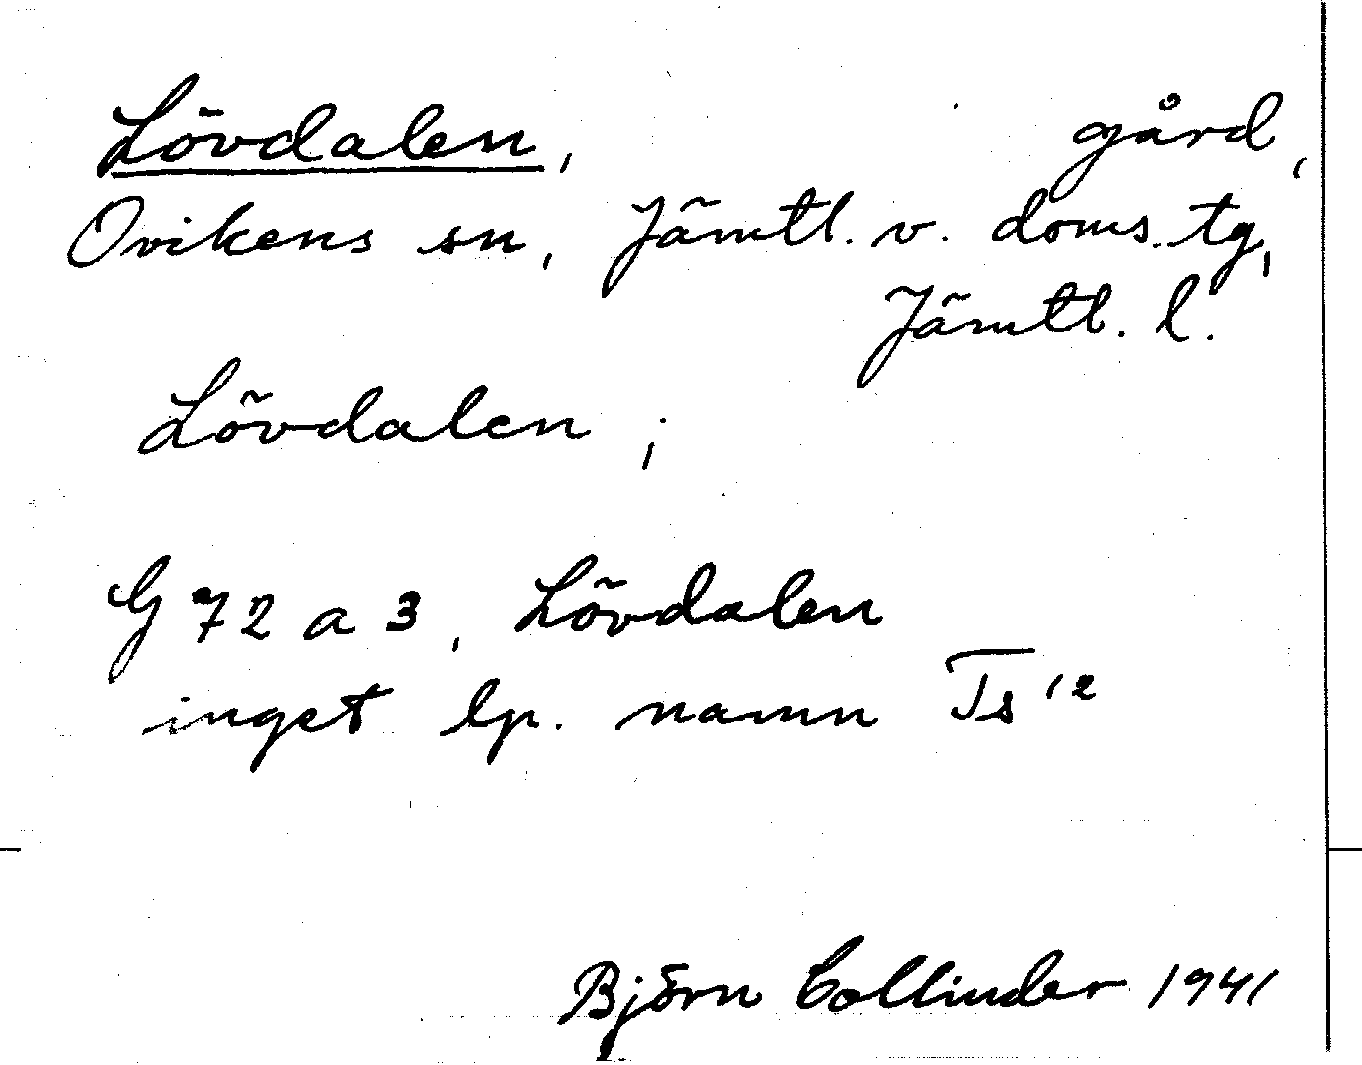 Lövdalen, gård,
Ovikens sn, Jämtl. v. doms. tg,
Jämtl. l.
Lövdalen;
G 72 a 3, Lövdalen
inget lp. namn Ts 12
Björn Collinder 1941